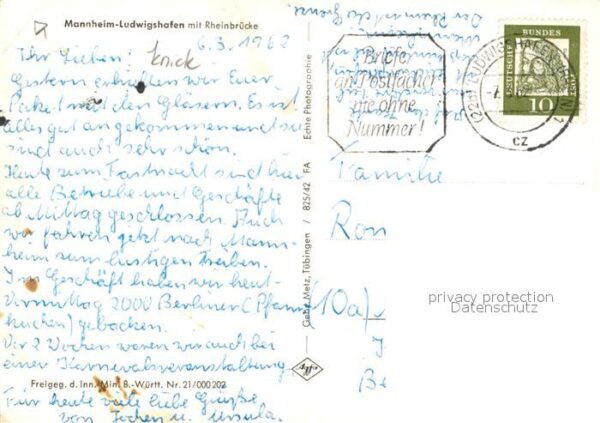 Mannheim-Ludwigshafen mit Rheinbrücke
6.3.1962
Ihr Lieben!
knick
Gestern erhielten wir Euer
Paket mit den Gläsern. Es ist
alles gut angekommen und sie
sind auch sehr schön.
Heute zum Fastnacht sind hier
alle Betriebe und Geschäfte
ab Mittag geschlossen. Auch
wir fahren jetzt nach Mann-
heim zum lustigen Treiben.
Im Geschäft haben wir heut-
Vormittag 2000 Berliner (Pfann
kuchen) gebacken.
Vor 2 Wochen waren wir auch bei
einer Karnevalsveranstaltung.
Freigeg. d. Inn. Min. B.-Württ. Nr. 21/000 202
Für heute viele liebe Grüße
von Jochen u. Ursula.
Gebr. Metz, Tübingen / 825/42 FA Echte Photographie
Agfa
Briefe
an Postfächer
nie ohne
Nummer!
(22b) LUDWIGSHAFEN
CZ
DEUTSCHE BUNDESPOST
10
Familie
Ron
(10a)
Be
privacy protection
Datenschutz